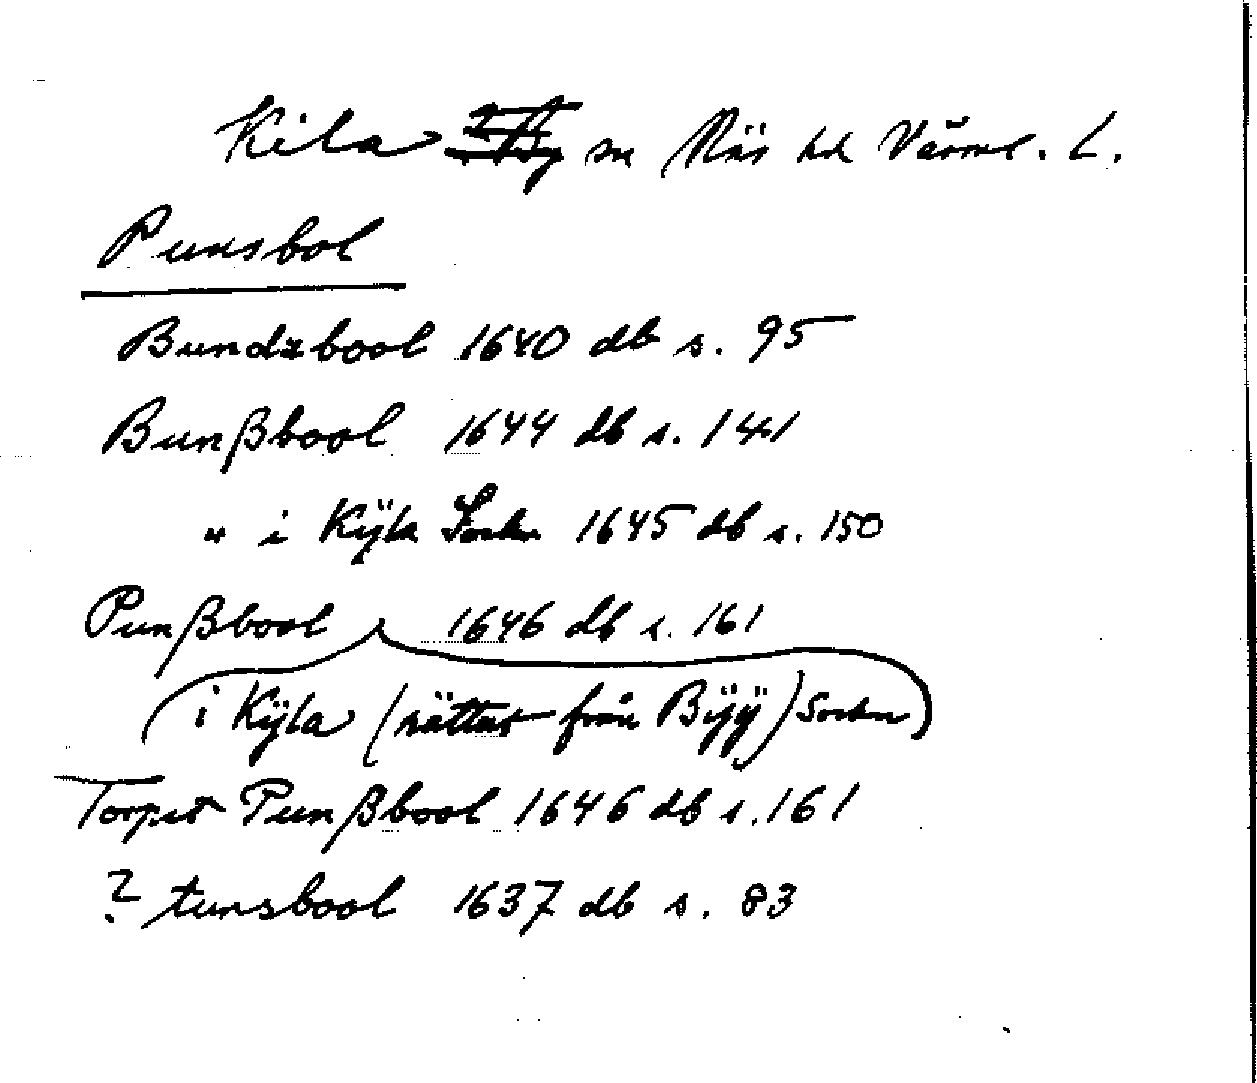 Kila sn Näs hd Värml. L.
Punsbol
Bundzbool 1640 db s. 95
Bunßbool 1644 db s. 141
" i Kÿla Sockn 1645 db s. 150
Punßbool 1646 db s. 161
i Kÿla (rättat från Bÿÿ) Sockn)
Torpet Punßbool 1646 db s. 161
? tunsbool 1637 db s. 83